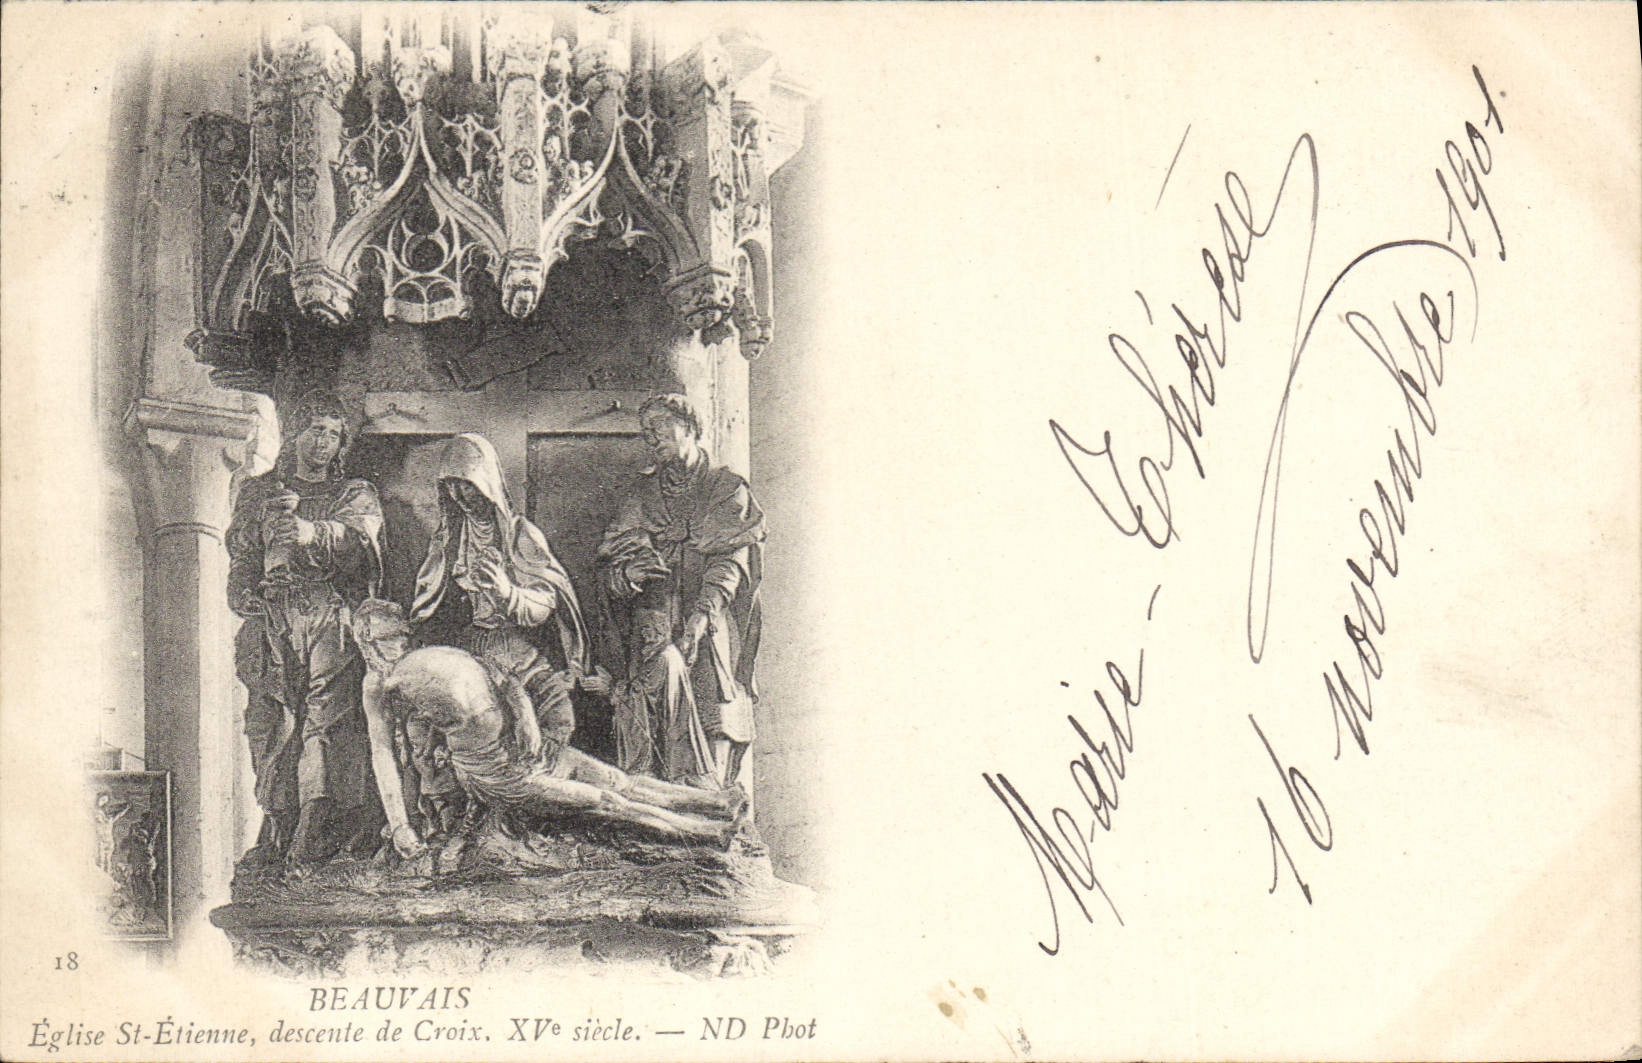 18
BEAUVAIS
Église St-Étienne, descente de Croix. XVe siècle. — ND Phot
Marie - Thérèse
16 novembre 1901.